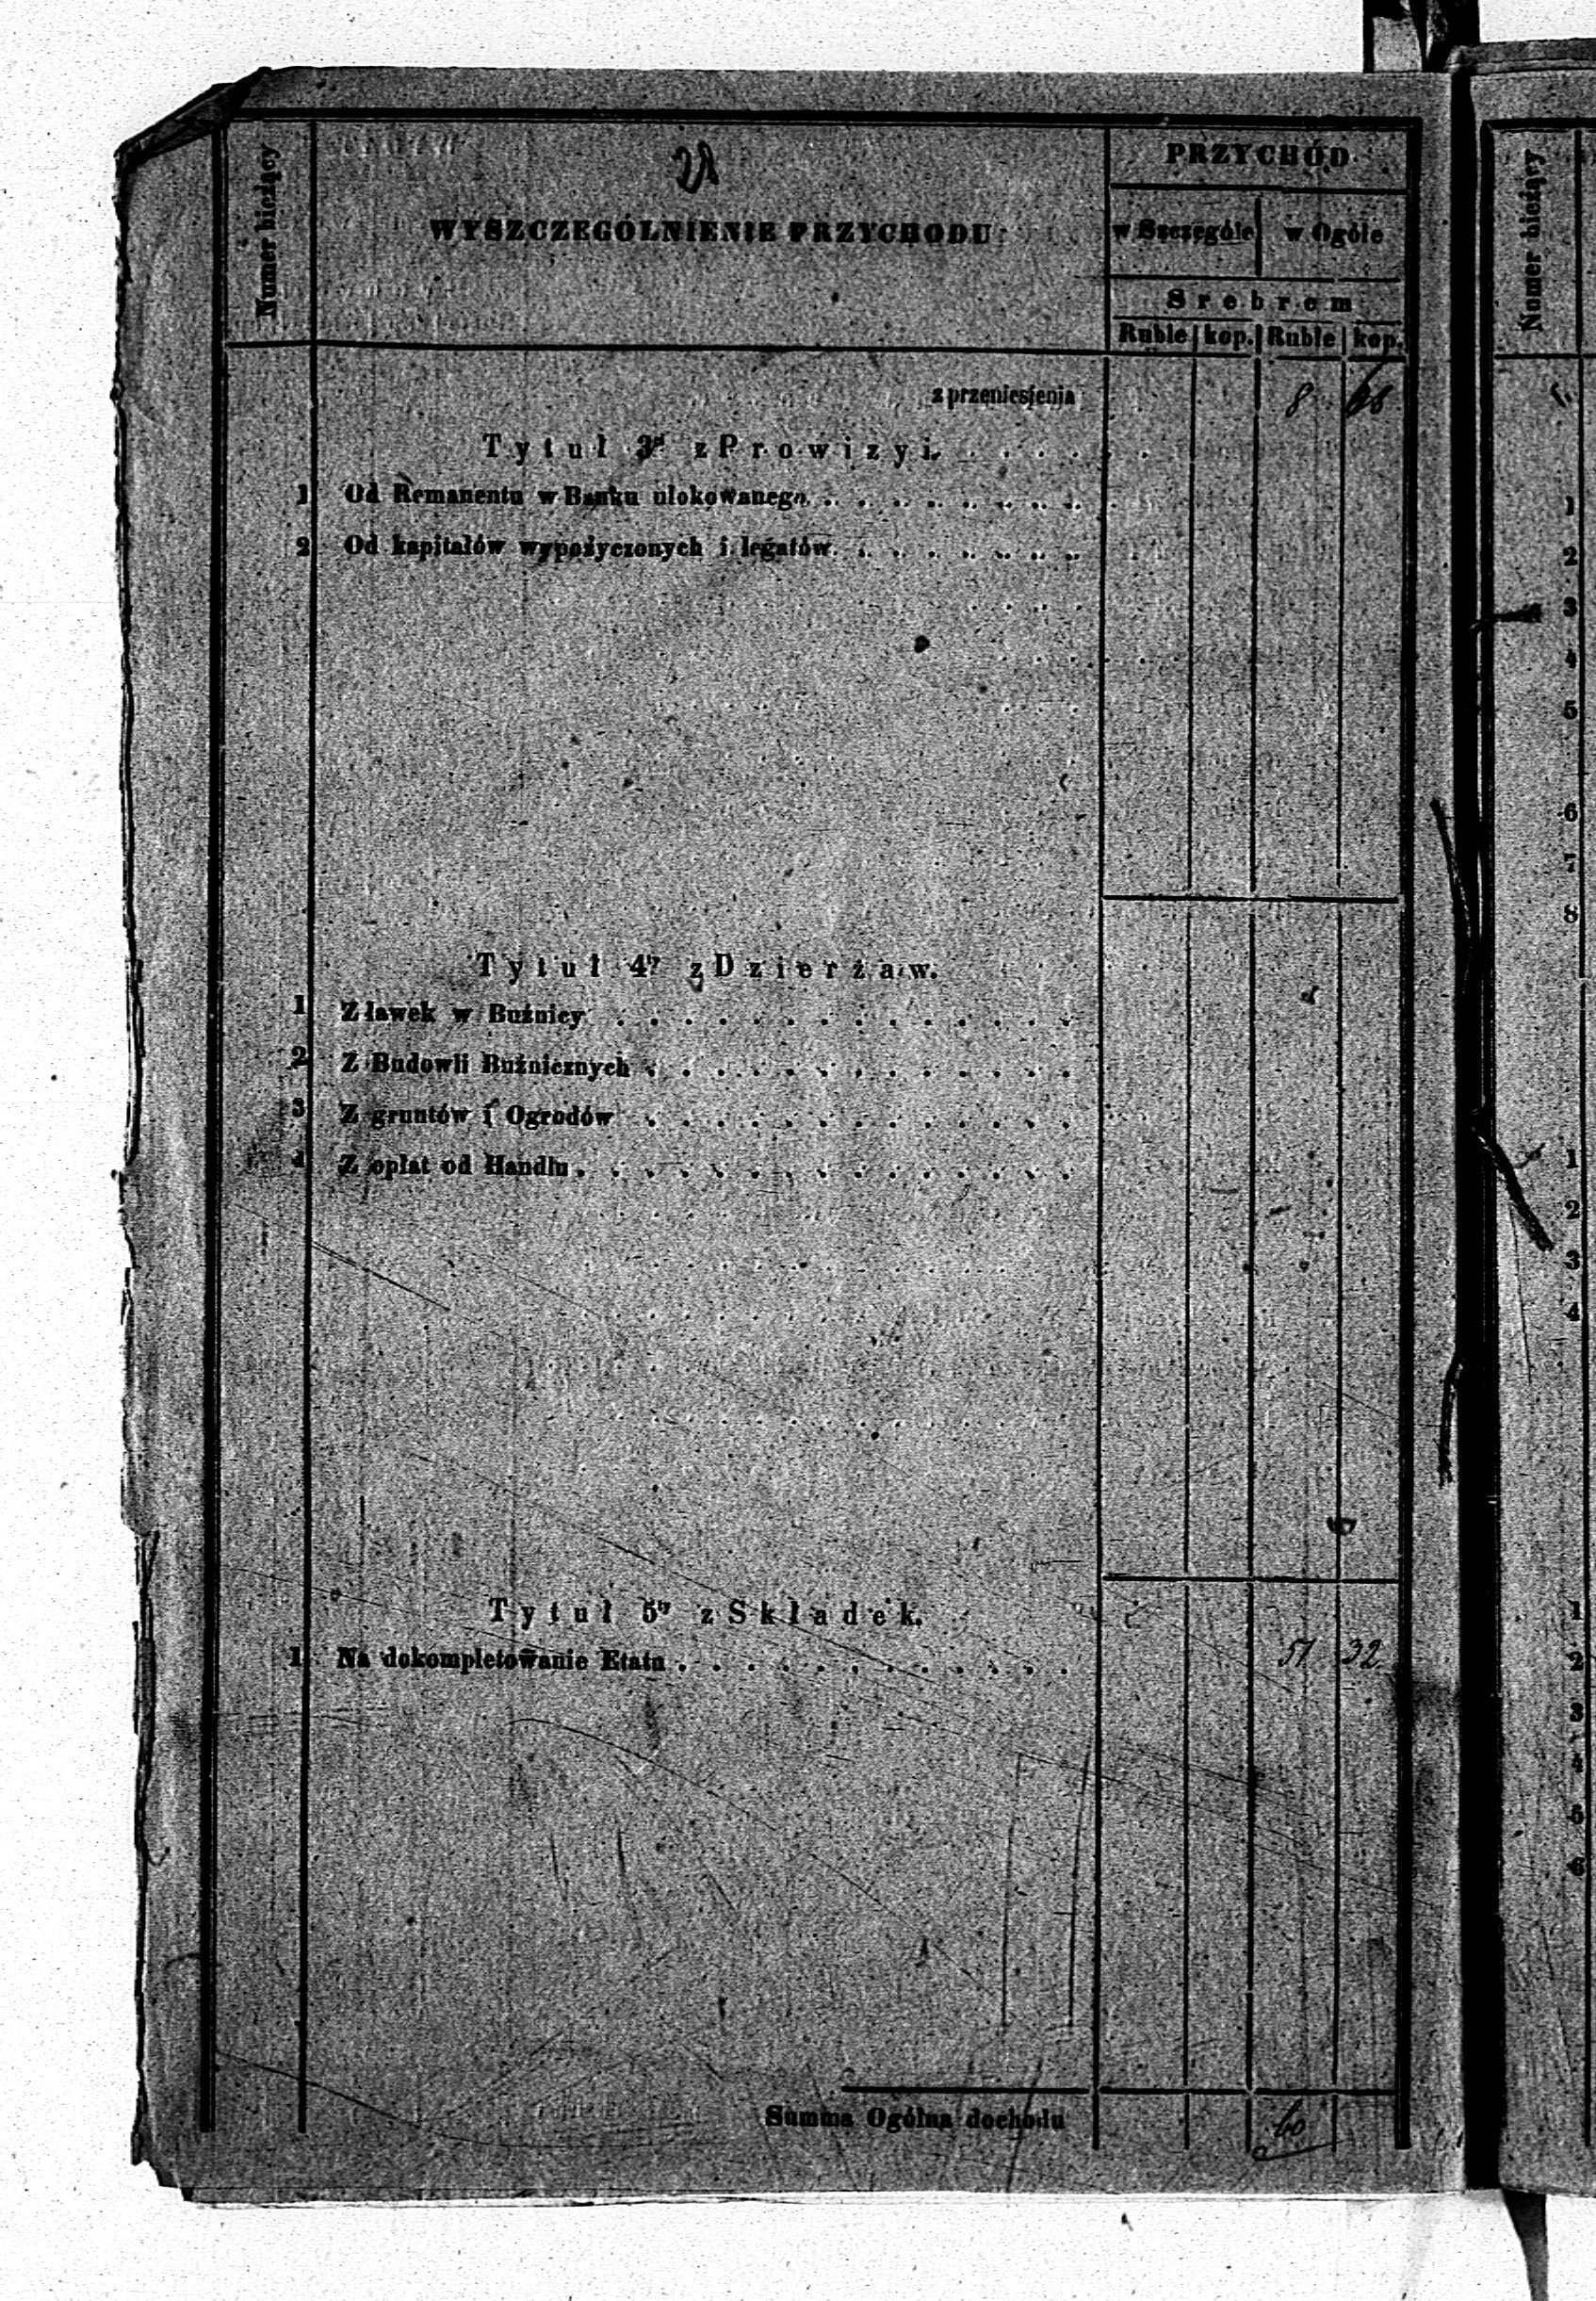 28
Numer bieżący
WYSZCZEGÓLNIENIE PRZYCHODU
PRZYCHÓD
w Szczególe w Ogóle
Srebrem
Ruble kop. Ruble kop.
z przeniesienia 8 68
Tytuł 3ci z Prowizyi.
1 Od Remanentu w Banku ulokowanego
2 Od kapitałów wypożyczonych i legatów
Tytuł 4ty z Dzierżaw.
1 Z ławek w Buźnicy
2 Z Budowli Buźnicznych
3 Z gruntów i Ogrodów
4 Z opłat od Handlu
Tytuł 5ty z Składek.
1 Na dokompletowanie Etatu 51 32
Summa Ogólna dochodu 60
Numer bieżący
1
2
3
4
5
6
7
8
1
2
3
4
1
2
3
4
5
6